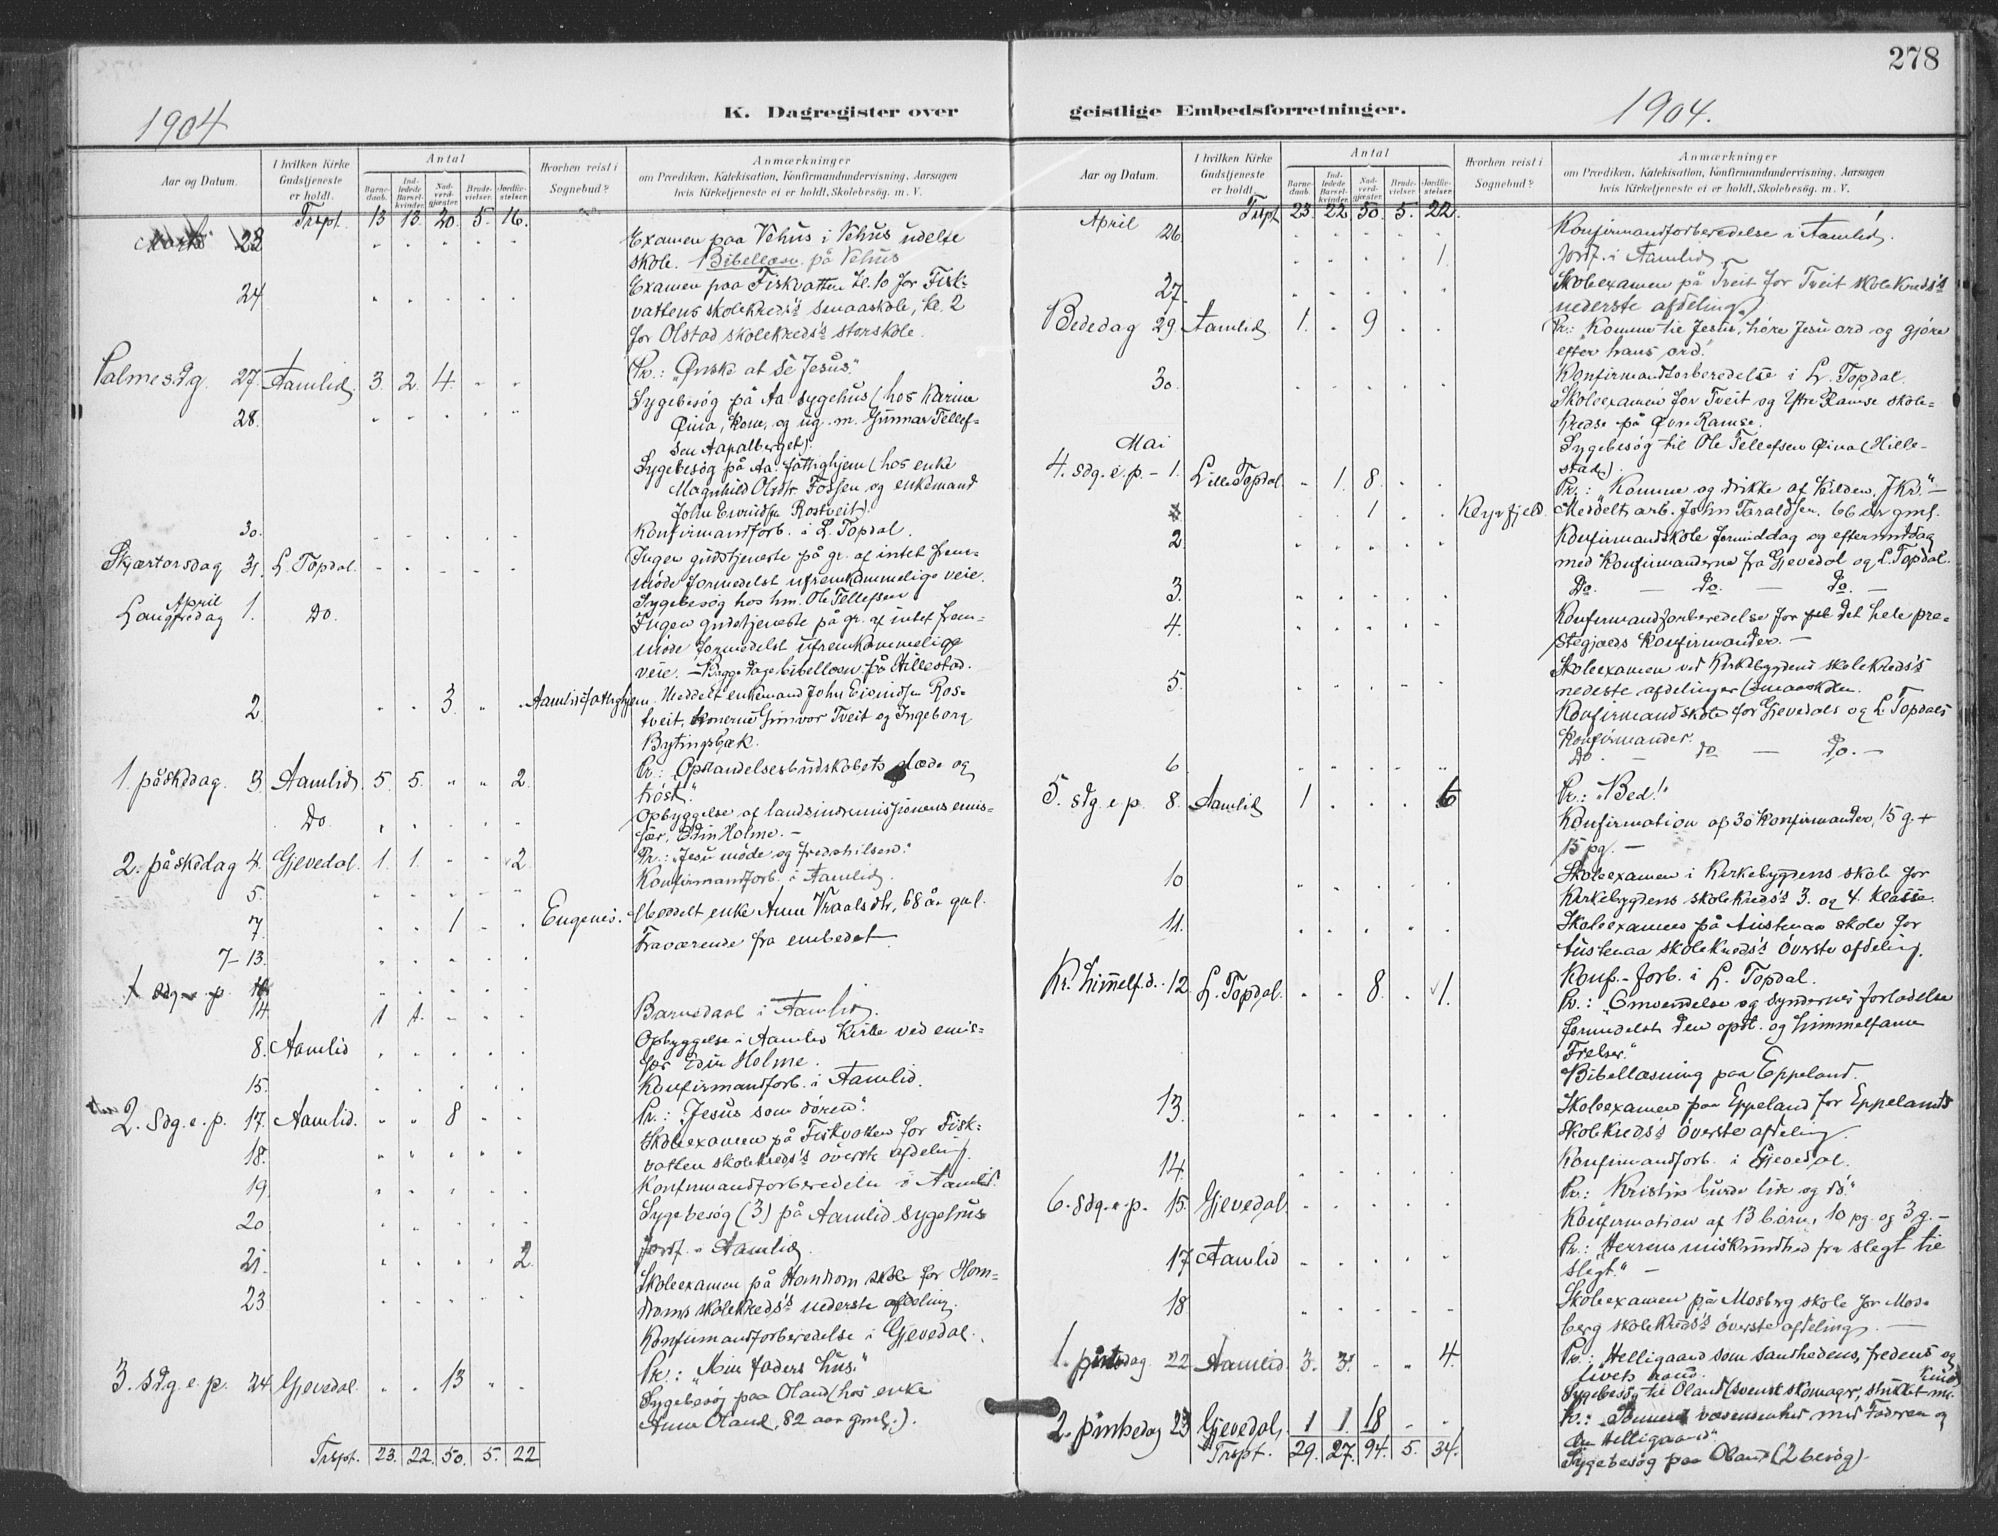 278
1904
K. Dagregister over
geistlige Embedsforretninger.
1904.
Aar og Datum.
I hvilken Kirke Gudstjeneste er holdt.
Antal
Barnedaab.
Indledede Barselkvinder.
Nadverdgjæster.
Brudevielser.
Jordfæstelser.
Hvorhen reist i Sognebud?
Anmærkninger
om Prædiken, Katekisation, Konfirmandundervisning, Aarsagen
hvis Kirketjeneste ei er holdt, Skolebesøg. m. V.
Trspt. 13 13. 20. 5. 16.
Marts 23 Examen paa Vehus i Vehus udelte
skole. Bibellæsn. på Vehus
24 Examen paa Fiskvatten kl. 10 for Fisk-
vattens skolekreds's smaaskole, kl. 2
for Olstad skolekreds's storskole.
Palmesdg. 27. Aamlid 3. 2. 4. Pr.: "Ønske at se Jesus."
28. Sygebesøg på Aa. sygehus (hos Karine
Øina, kone, og ug. m. Gunnar Tellef-
sen Aapalberget).
Sygebesøg på Aa. fattighjem (hos enke
Magnhild Olsdtr. Fossen og enkemand
John Eivindsn Rostveit).
30. Konfirmandforb. i L. Topdal.
Skjærtorsdag 31. L. Topdal. Ingen gudstjeneste på gr. af intet frem-
møde formedelst ufremkommelige veie.
Sygebesøg hos hm. Ole Tellefsen
April
Langfredag 1. Do. Ingen gudstjeneste på gr. af intet frem-
møde formedelst ufremkommelige
veie. - Begge dage bibellæsn. på Hillestad.
2. 3. Aamlid fattighjem. Meddelt enkemand John Eivindsn Ros-
tveit, konerne Gunvor Tveit og Ingeborg
Bytingsbæk.
1. påskedag. 3. Aamlid. 5. 5. 2. Pr.: Opstandelsesbudskabets glæde og
trøst."
Do. Opbyggelse af landsindremissionens emis-
sær, Edin Holme. -
2. påskedag 4. Gjevedal. 1. 1. 2. Pr.: "Jesu møde og fredshilsen."
5. Konfirmandforb. i Aamlid.
7. 1 Engenes. Meddelt enke Anne Vraalsdtr, 68 år gml.
7-13. Fraværende fra embedet
14. 1 1. Barnedaab i Aamlid.
8. Aamlid Opbyggelse i Aamlid Kirke ved emis-
sær Edin Holme.
15. Konfirmandforb. i Aamlid.
2. Sdg. e. p. 17. Aamlid. 8 Pr.: "Jesus som døren."
18. Skoleexamen på Fiskvatten for Fisk-
vatten skolekreds's øverste afdeling.
19. Konfirmandforberedelse i Aamlid.
20 Sygebesøg (3) på Aamlid sygehus
21. 2 Jordf. i Aamlid.
23 Skoleexamen på Homdrom skole for Hom-
droms skolekreds's nederste afdeling.
Konfirmandforberedelse i Gjevedal.
3. sdg. e. p. 24. Gjevedal. 13 Pr.: "Min faders hus."
Sygebesøg paa Oland (hos enke
Anne Oland, 82 aar gml.).
Trspt. 23. 22. 50. 5. 22
Aar og Datum.
I hvilken Kirke Gudstjeneste er holdt.
Antal
Barnedaab.
Indledede Barselkvinder.
Nadverdgjæster.
Brudevielser.
Jordfæstelser.
Hvorhen reist i Sognebud?
Anmærkninger
om Prædiken, Katekisation, Konfirmandundervisning, Aarsagen
hvis Kirketjeneste ei er holdt, Skolebesøg. m. V.
Trspt. 23. 22. 50. 5. 22.
April 26. Konfirmandforberedelse i Aamlid.
1. Jordf. i Aamlid
27. Skoleexamen på Tveit for Tveit skolekreds's
nederste afdeling.
Bededag 29 Aamlid 1. 9 Pr.: Komme til Jesus, høre Jesu ord og gjøre
efter hans ord.
30. Konfirmandforberedelse i L. Topdal.
Skoleexamen for Tveit og Ytre Ramse skole-
kredse på Øvre Ramse.
Sygebesøg til Ole Tellefsen Øina (Hille-
stad).
Mai
4. sdg. e. p. - 1. Lille Topdal 1. 8 Pr.: "Komme og drikke af kilden, J. Kr." -
1 Meddelt arb. John Taraldsen, 66 år gml.
2 Konfirmandskole formiddag og eftermiddag
med konfirmanderne fra Gjevedal og L. Topdal.
3. Do. - Do. - Do. -
4. Konfirmandforberedelse for det hele præ-
stegjælds konfirmander. -
5. Skoleexamen ved Kirkebygdens skolekreds's
nedeste afdelinger (smaaskolen.
Konfirmandskole for Gjevedals og L. Topdals
konfirmander.
6 Do - Do. - Do. -
5. sdg. e. p. 8. Aamlid 1 6 Pr.: "Bed!"
Konfirmation af 30 konfirmander, 15 g. +
15 pg. -
10 Skoleexamen i Kirkebygdens skole for
Kirkebygdens skolekreds's 3. og 4. klasse.
11. Skoleexamen på Austenaa skole for
Austenaa skolekreds's øverste afdeling.
Konf.-forb. i L. Topdal.
Kr. himmelf.d. 12. L. Topdal. 8. 1. Pr.: "Omvendelse og syndernes forladelse
formedelst den opst. og himmelfarne
Frelser."
Bibellæsning paa Eppeland.
13. Skoleexamen paa Eppeland for Eppelands
skolekreds's øverste afdeling.
14. Konfirmandforb. i Gjevedal.
6. sdg. e. p. 15. Gjevedal. Pr.: "Kristus burde lide og dø."
Konfirmation af 13 børn, 10 pg. og 3 g. -
17 Aamlid Pr.: "Herrens miskundhed fra slegt til
slegt." -
18 Skoleexamen på Mosberg skole for Mos-
berg skolekreds's øverste afdeling. -
1. pinsedag. 22. Aamlid. 3. 3. 4. Pr.: Helligaand som sandhedens, fredens og
livets aand.
2. pinsedag 23 Gjevedal. 1 1 18 Pr.: væsensenhed med Faderen og
den Helligaand."
Trspt. 29. 27. 94. 5. 34. Sygebesøg paa Oland (2 besøg).